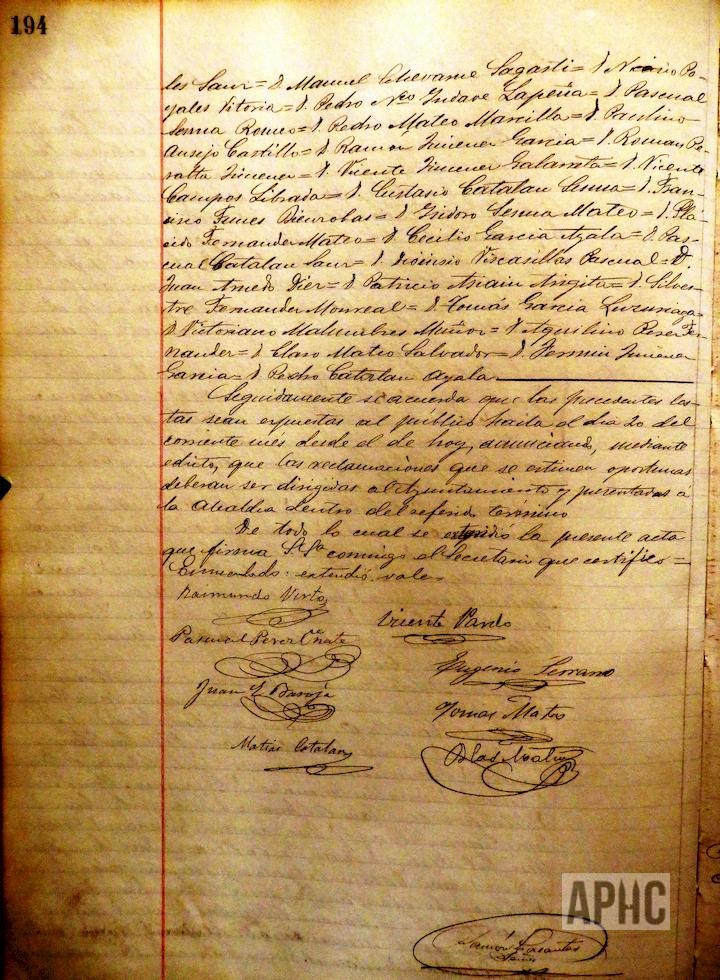 194
les Sanz = D. Manuel Echevarne Sagasti = D. Nicasio Po-
yales Vitoria = D. Pedro Nco Yndave Lapeña = D. Pascual
Senna Romeo = D. Pedro Mateo Marcilla = D. Paulino
Ausejo Castillo = D. Ramon Jimenez Garcia = D. Roman Pe-
ralta Jimenez = D. Vicente Jimenez Galarreta = D. Vicente
Campos Librada = D. Eustasio Catalan Senna = D. Fran-
cisco Funes Bienzobas = D. Ysidoro Senna Mateo = D. Plá-
cido Fernandez Mateo = D. Cecilio Garcia Ayala = D. Pas-
cual Catalan Sanz = D. Dionisio Viscasillas Pascual = D.
Juan Arnedo Diez = D. Patricio = D. Silves-
tre Fernandez Monreal = D. Tomás Garcia Luzuriaga =
D. Victoriano Malumbres Muñoz = D. Aquilino Perez Fer-
nandez = D. Claro Mateo Salvador = D. Fermin Jimenez
Garcia = D. Pedro Catalan Ayala
Seguidamente se acuerda que las precedentes lis-
tas sean expuestas al público hasta el dia 20 del
corriente mes desde el de hoy, anunciando, mediante
edicto, que las reclamaciones que se estimen oportunas
deberan ser dirigidas al Ayuntamiento y presentadas á
la Alcaldia dentro del referido término
De todo lo cual se extendió la presente acta
que firma S. Sª conmigo el Secretario que certifico =
Enmendado: extendió. vale.
Raimundo Virto
Vicente Pardo
Pascual Perez Oñate
Eugenio Serrano
Juan Y. Baroja
Tomas Mateo
Matias Catalan
Blas
APHC